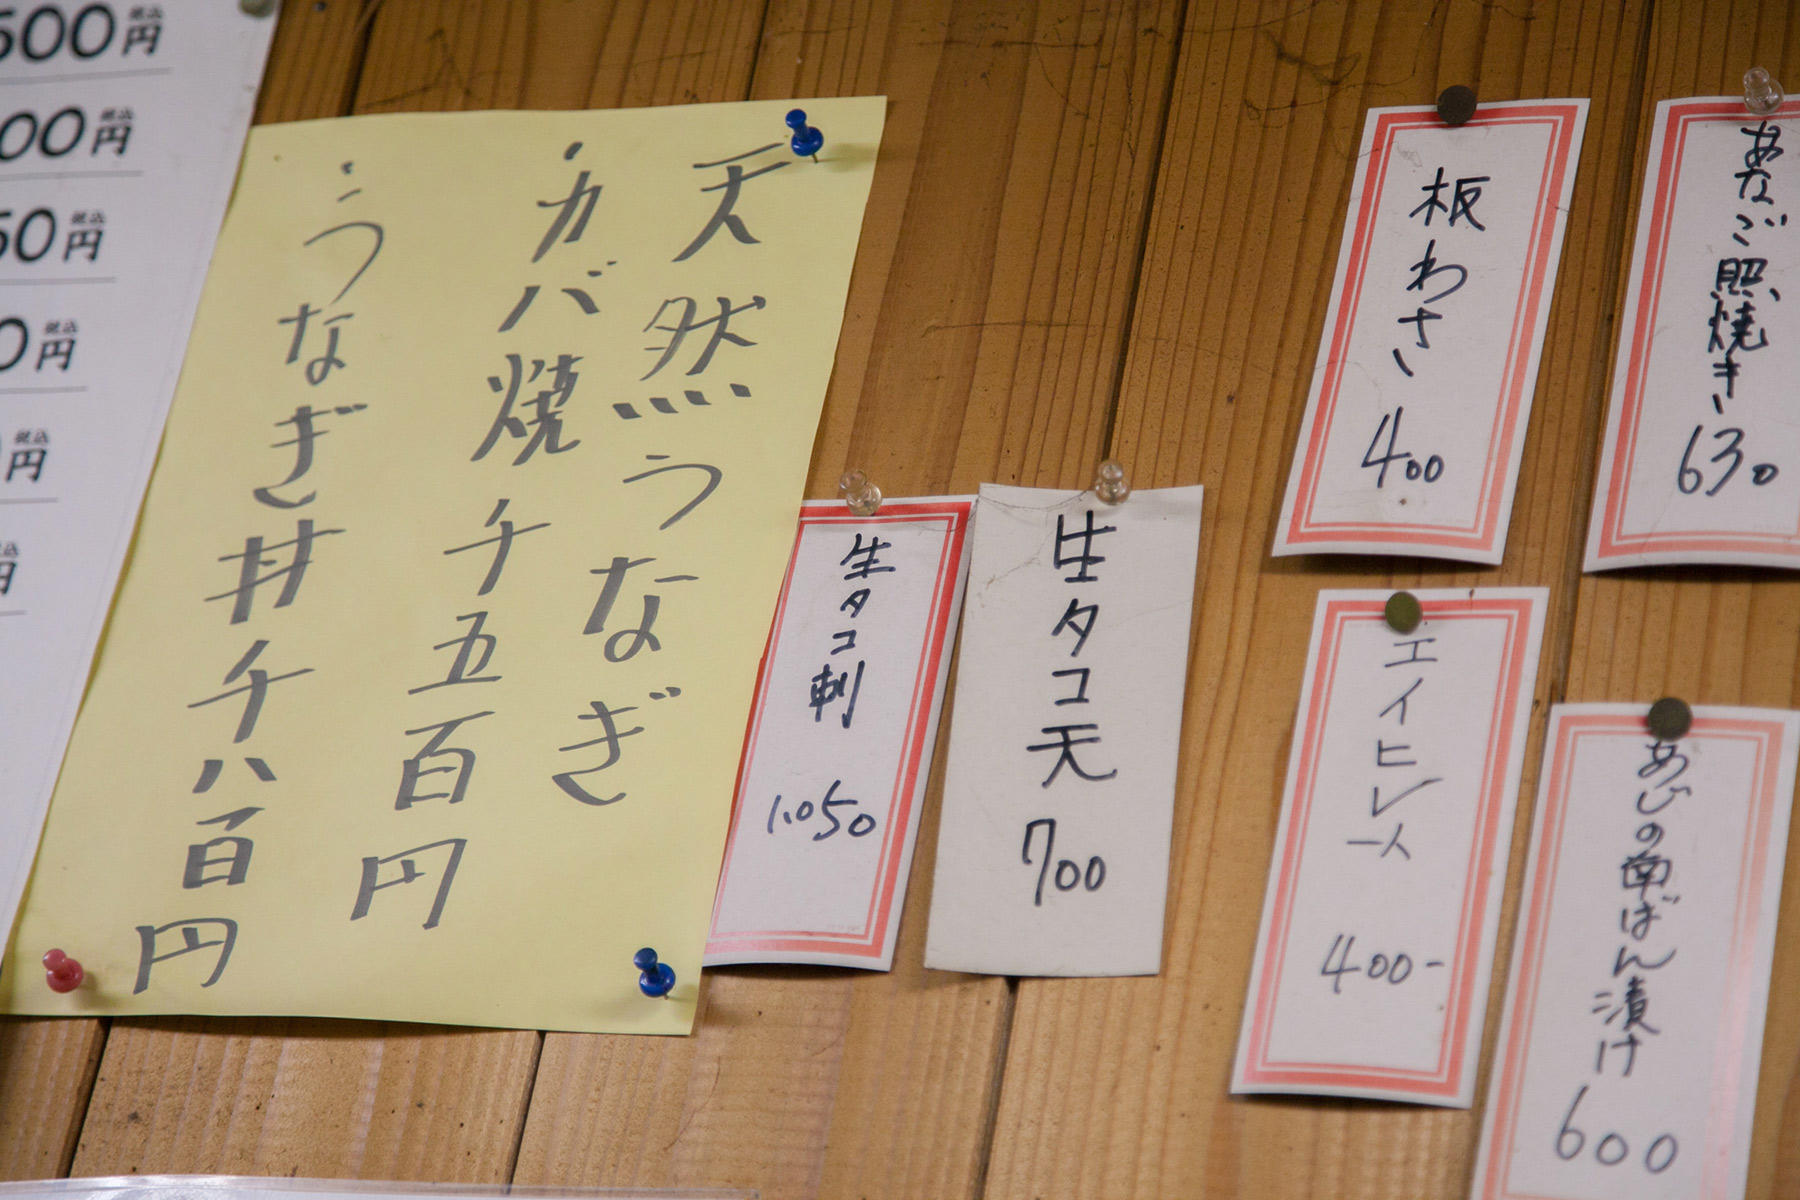 500円 税込
00円 税込
50円 税込
0円 税込
円 税込
円 税込
天然うなぎ
・カバ焼 千五百円
・うなぎ丼 千八百円
生タコ刺 1.050
生タコ天 700
板わさ 400
あなご照焼き 630
エイヒレ 一人 400-
あじの南ばん漬け 600